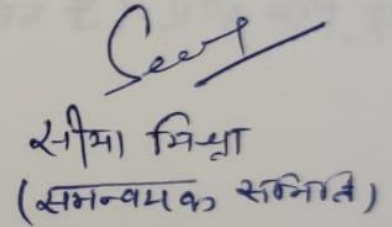 सीमा मिश्रा
(समन्वयक समिति)